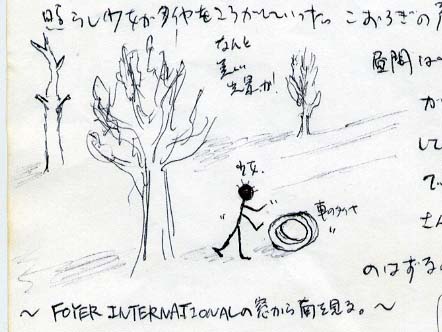 照らし少女がタイヤをころがしていった。こおろぎの
なんと
美しい
光景か!
昼間は
して
少女.
車のタイヤ
さん
のはずる
〜 FOYER INTERNATIONALの窓から南を見る。〜